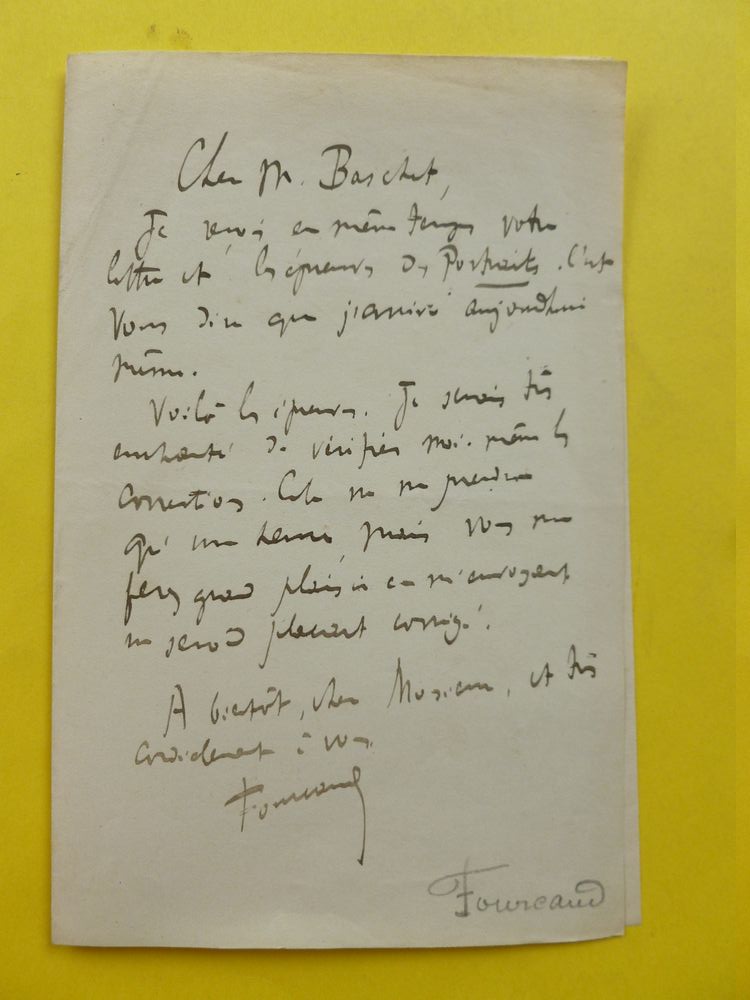 Cher M. Baschet,
Je reçois en même temps votre
lettre et les épreuves des Portraits. C'est
vous dire que j'arrive aujourd'hui
même.
Voilà les épreuves. Je serais très
enchanté de vérifier moi-même les
corrections. Cela ne me prendra
qu'une heure, mais vous me
ferez grand plaisir en m'envoyant
un second placard corrigé.
A bientôt, cher Monsieur, et très
cordialement à vous.
Fourcaud
Fourcaud